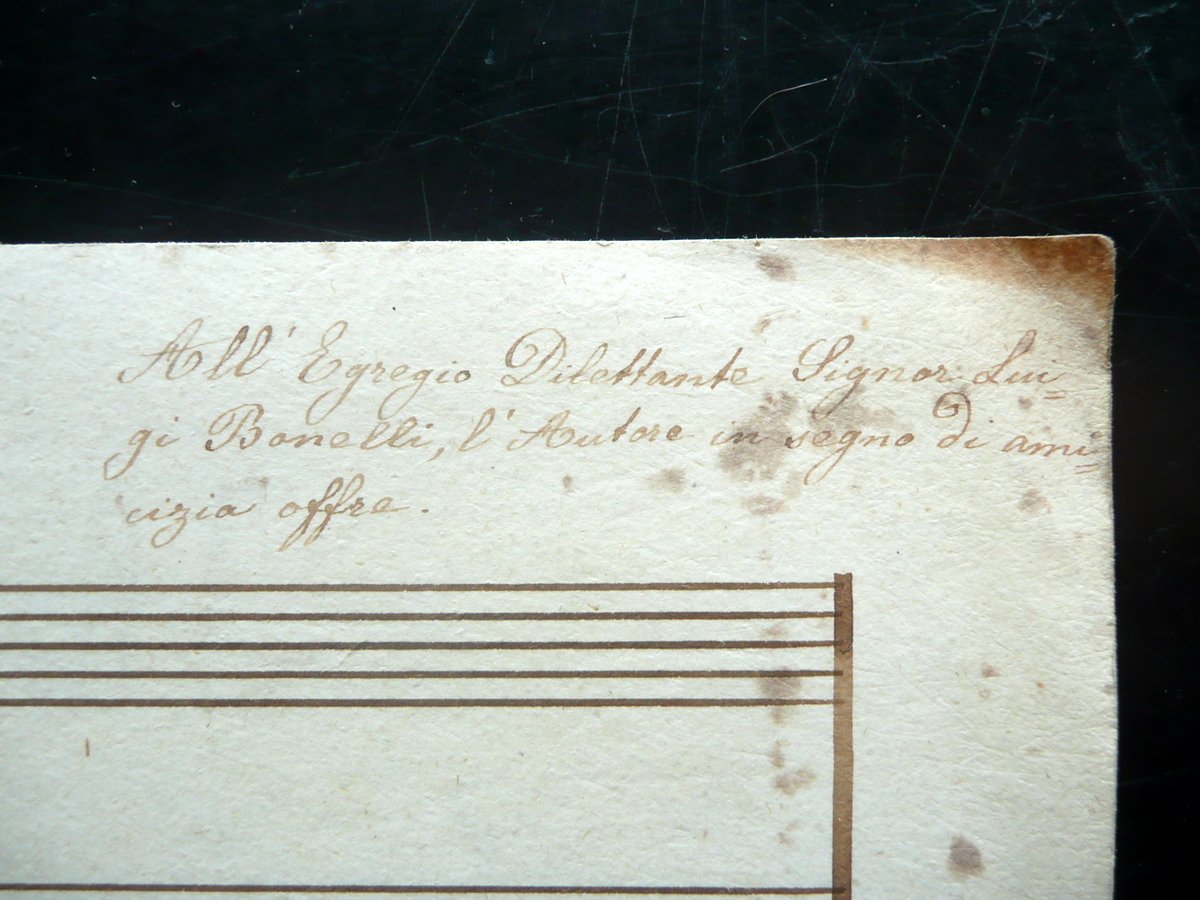 All' Egregio Dilettante Signor Lui=
gi Bonelli, l'Autore in segno di ami=
cizia offre.